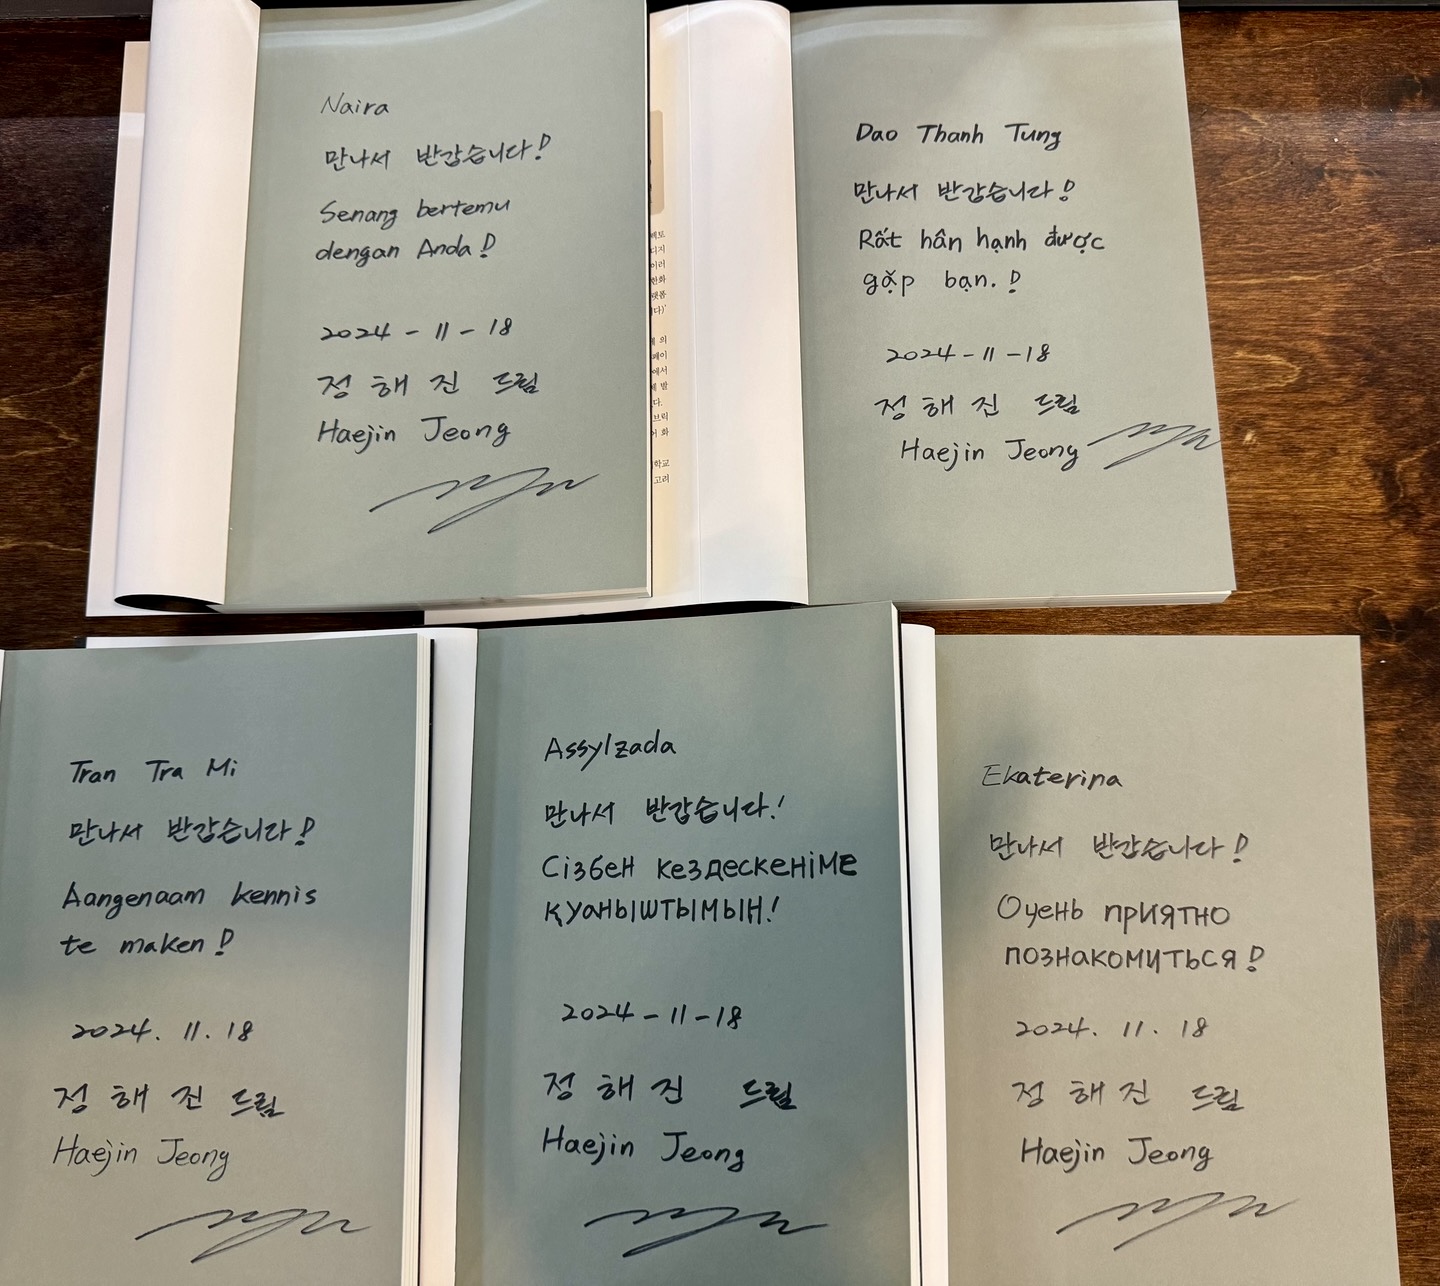 Naira
만나서 반갑습니다!
Senang bertemu
dengan Anda!
2024 - 11 - 18
정 해 진 드림
Haejin Jeong
Dao Thanh Tung
만나서 반갑습니다!
Rất hân hạnh được
gặp bạn.!
2024 - 11 - 18
정 해 진 드림
Haejin Jeong
Tran Tra Mi
만나서 반갑습니다!
Aangenaam kennis
te maken!
2024. 11. 18
정 해 진 드림
Haejin Jeong
Assylzada
만나서 반갑습니다!
Сізбен кездескеніме
қуаныштымын!
2024 - 11 - 18
정 해 진 드림
Haejin Jeong
Ekaterina
만나서 반갑습니다!
Очень приятно
познакомиться!
2024. 11. 18
정 해 진 드림
Haejin Jeong